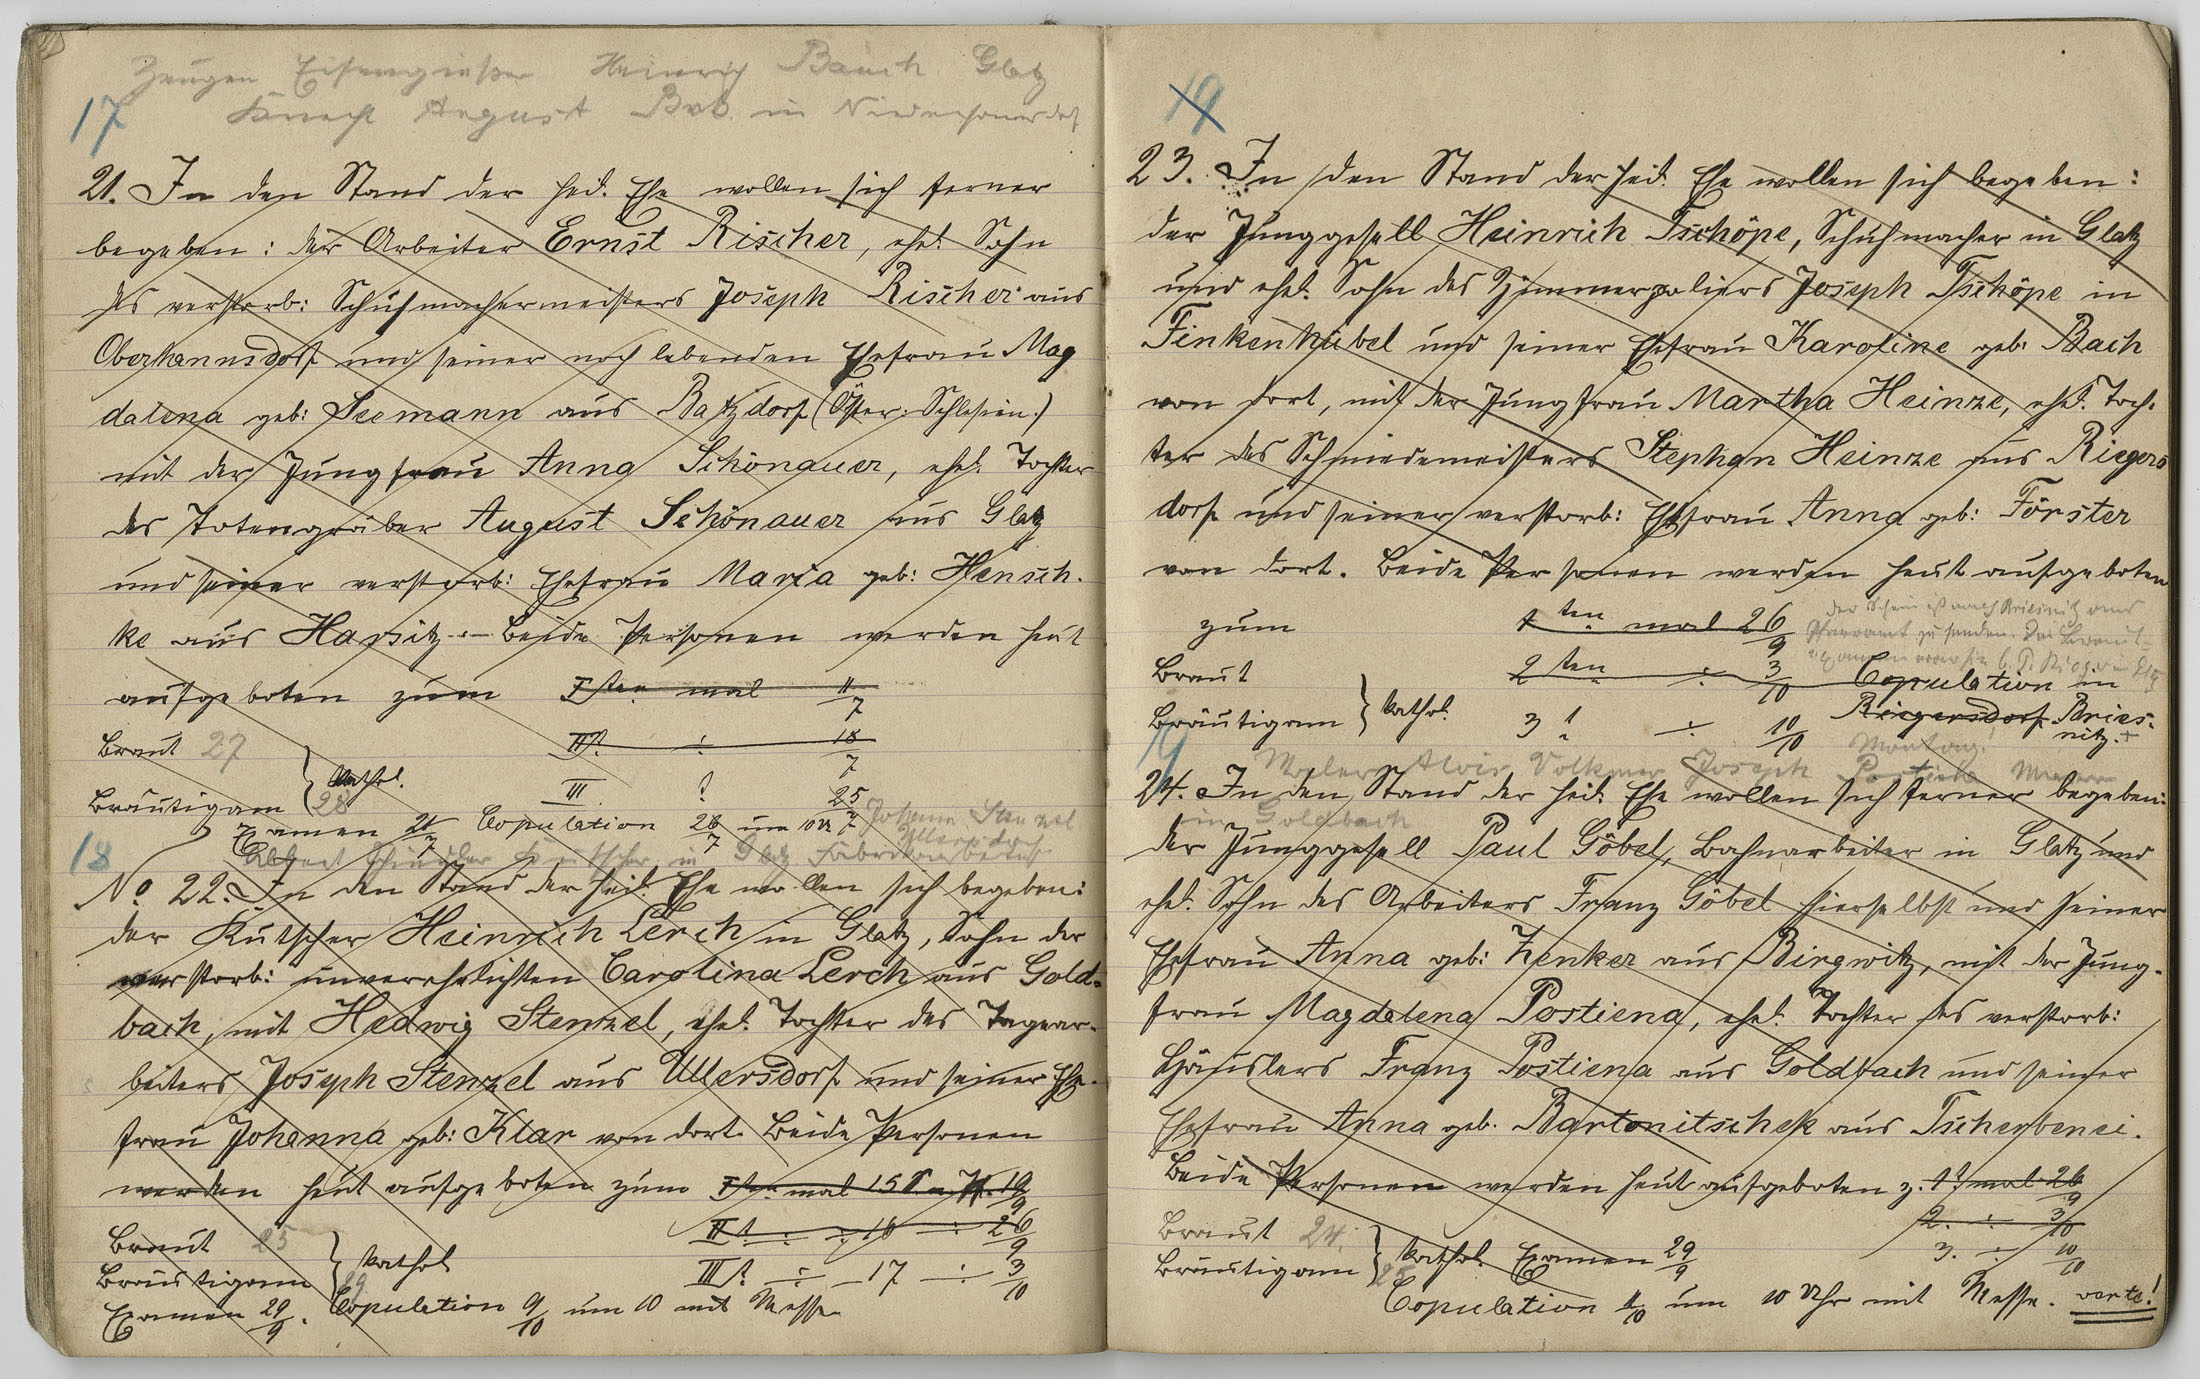 Zeugen Eisengießer Heinrich Bauch Glatz
17 Knecht August in Niederhannsdorf
21. In den Stand der heil. Ehe wollen sich ferner
begeben: der Arbeiter Ernst Rischer, ehel. Sohn
des verstorb: Schuhmachermeisters Joseph Rischer aus
Oberhannsdorf und seiner noch lebenden Ehefrau Mag
dalena geb: Seemann aus Batzdorf (Öster: Schlesien.)
mit der Jungfrau Anna Schönauer, ehel. Tochter
des Totengräber August Schönauer aus Glatz
und seiner verstorb: Ehefrau Maria geb: Hensch-
ke aus Hassitz. – Beide Personen werden heut
aufgeboten zum I sten mal 11/7
Braut 27 II t. ÷ 18/7
Bräutigam 28 } kathol. III t 25/7
Examen 21/7 Copulation 26/7 um 10 Uhr Johann Stenzel
18 Albert Kutscher in Glatz Fabrikarbeiter Ullersdorf
No. 22. In den Stand der heil. Ehe wollen sich begeben:
der Kutscher Heinrich Lerch in Glatz, Sohn der
verstorb: unverehelichten Carolina Lerch aus Gold-
bach, mit Hedwig Stenzel, ehel. Tochter des Tagear-
beiters Joseph Stenzel aus Ullersdorf und seiner Ehe-
frau Johanna geb: Klar von dort. Beide Personen
werden heut aufgeboten zum I sten mal 15 S. n. Pf. 19/9
Braut 25 II t. ÷ 16 ÷ 26/9
Bräutigam 29 } kathol. III t ÷ 17 ÷ 3/10
Examen 29/9. Copulation 9/10 um 10 mit Messe
19
23. In den Stand der heil. Ehe wollen sich begeben:
der Junggesell Heinrich Tschöpe, Schuhmacher in Glatz
und ehel. Sohn des Zimmerpoliers Joseph Tschöpe in
Finkenhübel und seiner Ehefrau Karoline geb: Bach
von dort, mit der Jungfrau Martha Heinze, ehel. Toch-
ter des Schmiedemeisters Stephan Heinze aus Riegers
dorf und seiner verstorb: Ehefrau Anna geb: Förster
von dort. Beide Personen werden heut aufgeboten
zum 1 ten mal 26/9 der Schein ist nach Briesnitz ans
Pfarramt zu senden. Das Braut-
Braut 2 ten ÷ 3/10 Copulation in
Bräutigam } kathol. 3 t ÷ 10/10 Riegersdorf Bries-
nitz. +
19 Maler Alois Volkmer Joseph Postiena Maurer
24. In den Stand der heil. Ehe wollen sich ferner begeben:
in Goldbach
der Junggesell Paul Göbel, Bahnarbeiter in Glatz und
ehel. Sohn des Arbeiters Franz Göbel hierselbst und seiner
Ehefrau Anna geb: Zenker aus Birgwitz, mit der Jung-
frau Magdalena Postiena, ehel. Tochter des verstorb:
Häuslers Franz Postiena aus Goldbach und seiner
Ehefrau Anna geb. Bartonitschek aus Tscherbenei.
Beide Personen werden heut aufgeboten z. 1 t mal 26/9
2. ÷ 3/10
Braut 24. 3. ÷ 10/10
Bräutigam 25 } kathol. Examen 29/9
Copulation 11/10 um 10 Uhr mit Messe. verte!